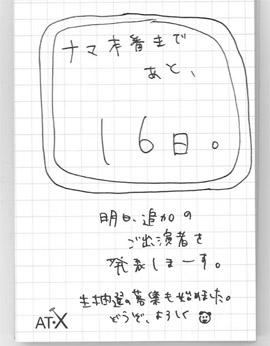 ナマ本番まで
あと、
16日。
明日、追加の
ご出演者を
発表しまーす。
生抽選の募集も始めました。
どうぞ、よろしく
AT-X